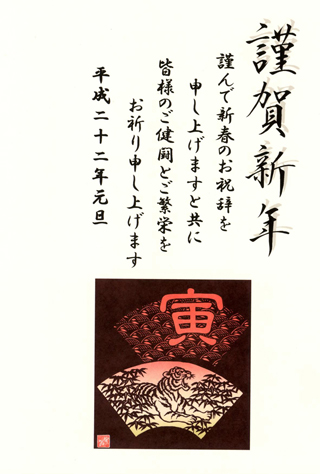 謹賀新年
謹んで新春のお祝辞を
申し上げますと共に
皆様のご健闘とご繁栄を
お祈り申し上げます
平成二十二年元旦
寅